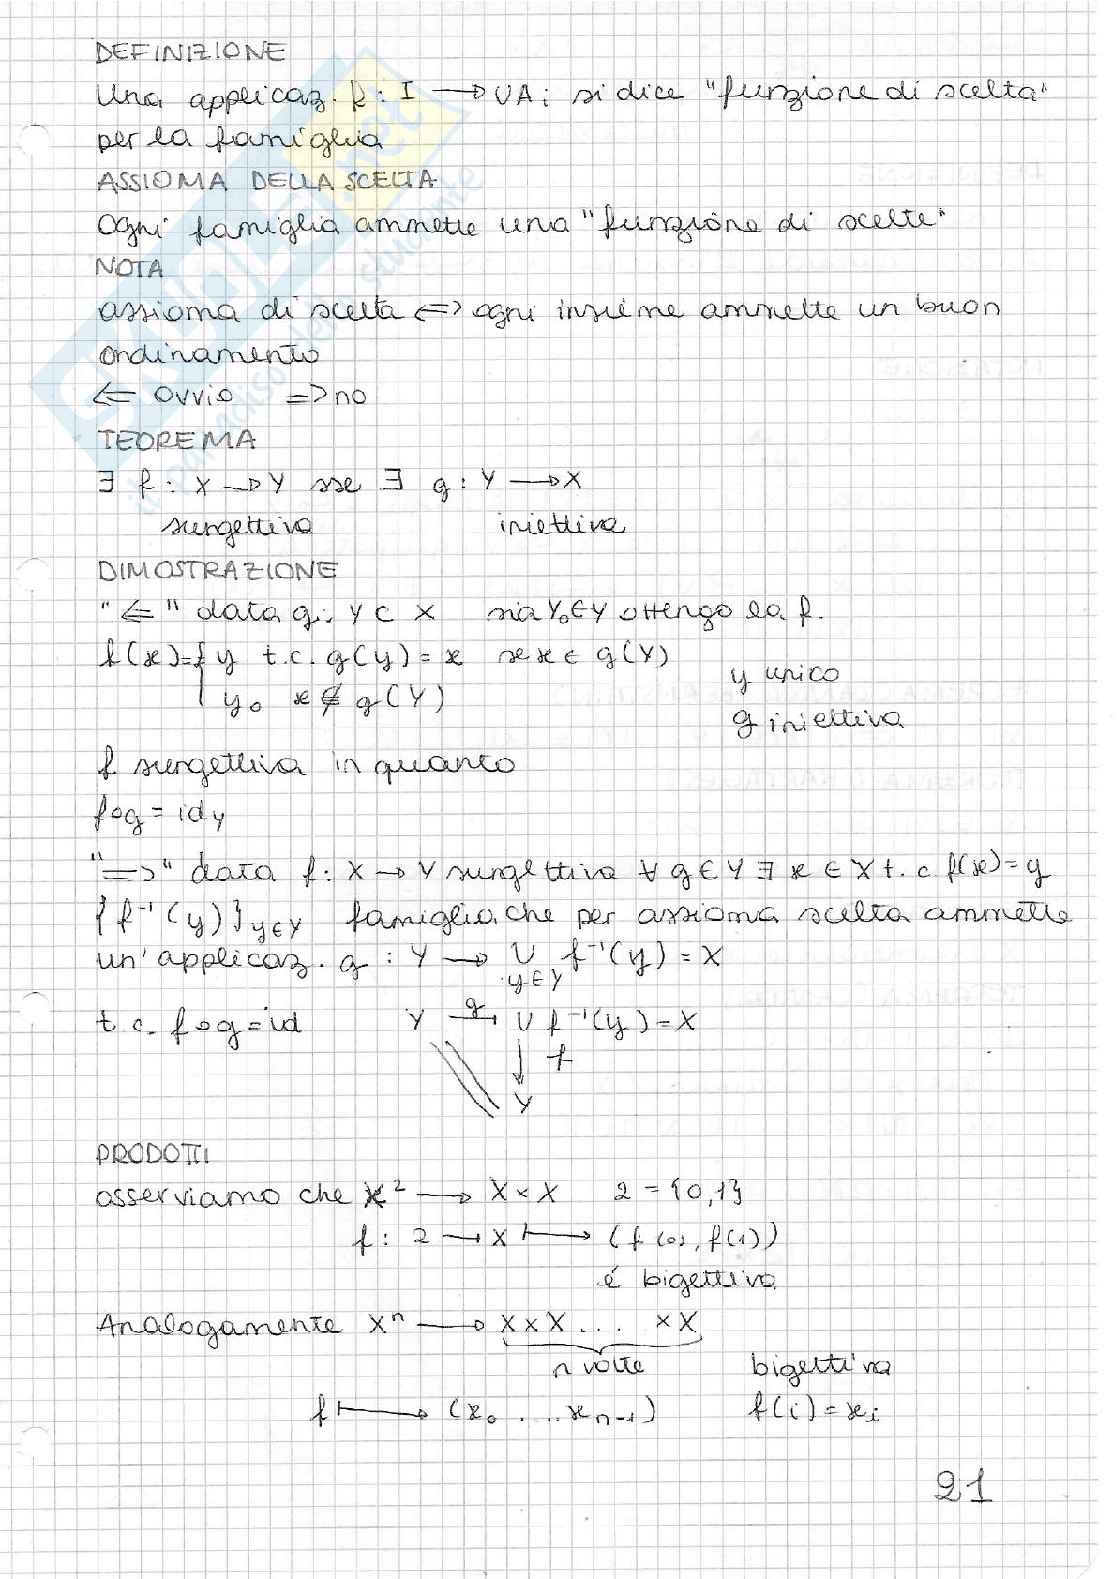 DEFINIZIONE
Una applicaz. f : I → ∪Ai si dice "funzione di scelta"
per la famiglia
ASSIOMA DELLA SCELTA
Ogni famiglia ammette una "funzione di scelte"
NOTA
assioma di scelta <=> ogni insieme ammette un buon
ordinamento
<= ovvio => no
TEOREMA
∃ f : X → Y sse ∃ g : Y → X
surgettiva iniettiva
DIMOSTRAZIONE
"<=" data g: Y ⊂ X sia y₀∈Y ottengo la f.
f(x)={ y t.c. g(y) = x se x ∈ g(Y)
y unico
y₀ x ∉ g(Y)
g iniettiva
f surgettiva in quanto
f∘g = id_Y
"=>" data f: X → Y surgettiva ∀ y ∈ Y ∃ x ∈ X t.c f(x) = y
{f⁻¹(y)}_{y∈Y} famiglia che per assioma scelta ammette
un' applicaz. g : Y → ∪ f⁻¹(y) = X
y∈Y
t.c. f∘g = id Y →g ∪ f⁻¹(y) = X
↓ f
Y
PRODOTTI
osserviamo che X² → X × X 2 = {0,1}
f : 2 → X ↦ (f(0), f(1))
é bigettiva
Analogamente Xⁿ → X × X ... × X
n volte bigettiva
f ↦ (x₀ .... xₙ₋₁) f(i) = xᵢ
21